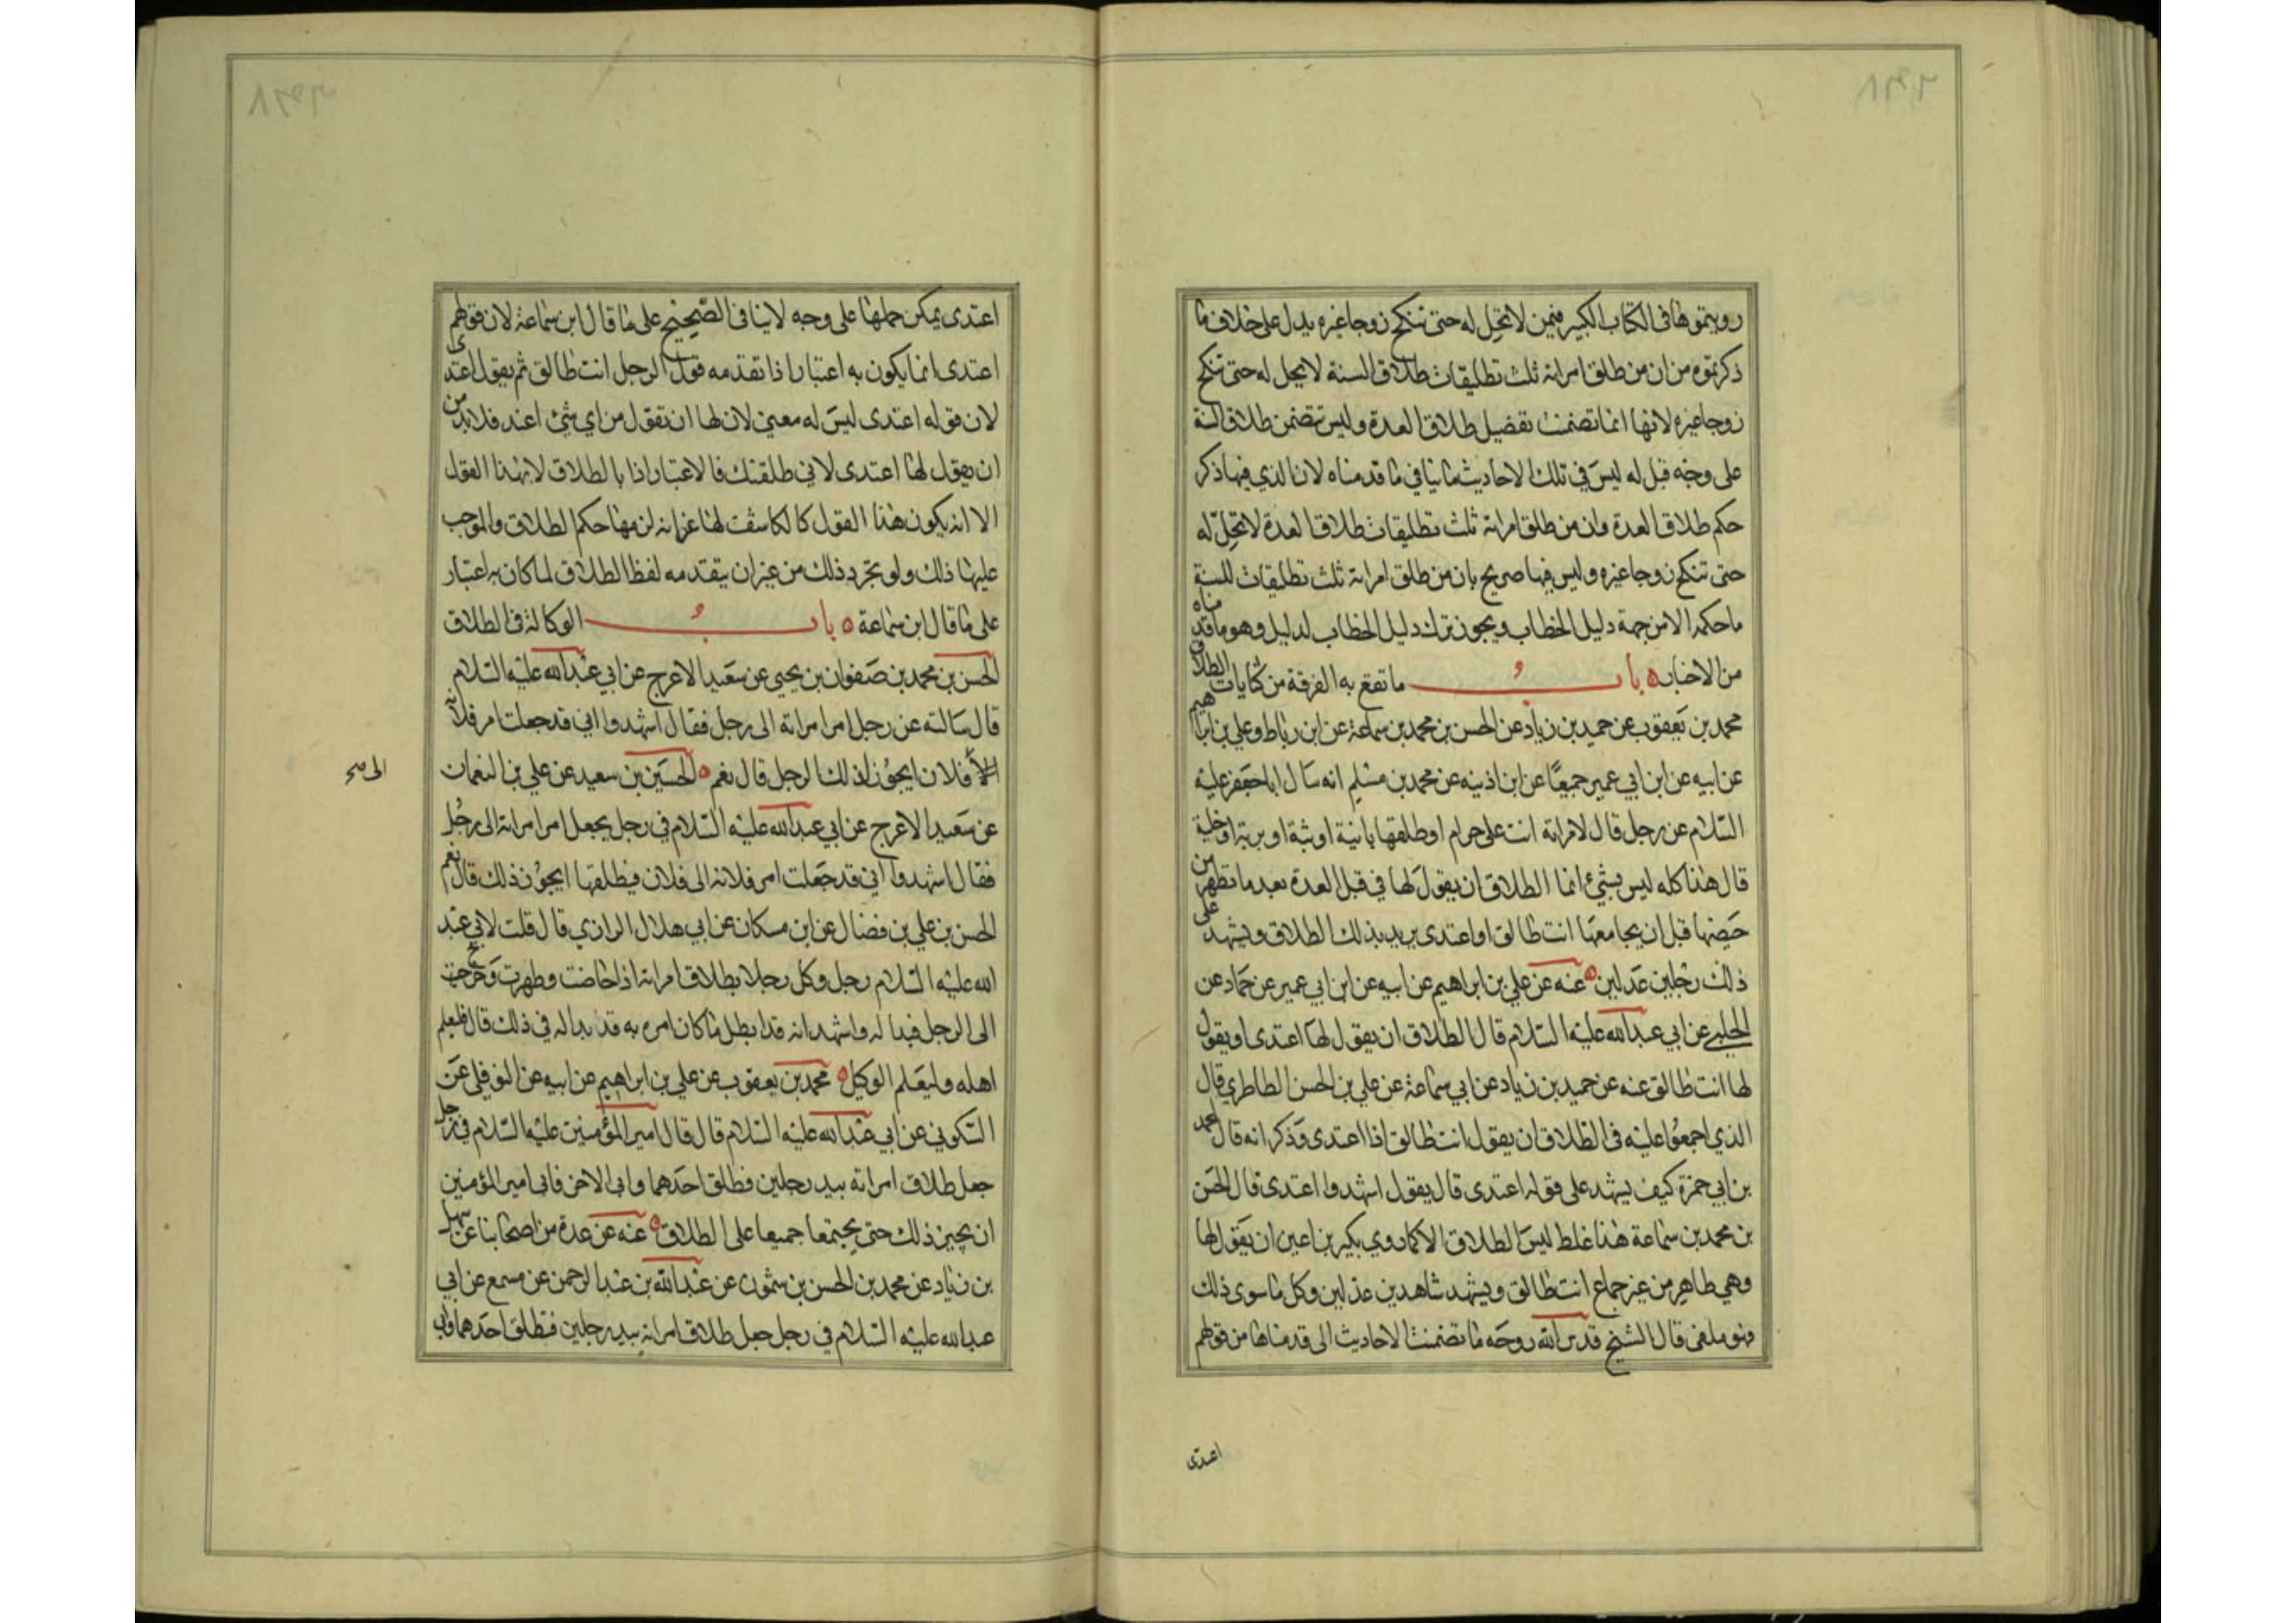 رويتموها في الكتاب الكبير فيمن لا تحل له حتى تنكح زوجا غيره يدل على خلاف ما
ذكرتموه من ان من طلق امراته ثلث تطليقات طلاق السنة لا يحل له حتى تنكح
زوجا غيره لانها انما تضمنت تفضيل طلاق العدة وليس تتضمن طلاق السنة
على وجه قبل له ليس في تلك الاحاديث ما ينافي ما قدمناه لان الذي فيها ذكر
حكم طلاق العدة وان من طلق امراته ثلث تطليقات طلاق العدة لا تحل له
حتى تنكح زوجا غيره وليس فيها صريح بان من طلق امراته ثلث تطليقات للسنة
ما حكمه الا من جهة دليل الخطاب ويجوز ترك دليل الخطاب لدليل وهو ما قدمناه
من الاخبار ه باب ما تقع به الفرقة من كنايات الطلاق
محمد بن يعقوب عن حميد بن زياد عن الحسن بن محمد بن سماعة عن ابن رباط وعلي بن ابراهيم
عن ابيه عن ابن ابي عمير جميعا عن ابن اذينه عن محمد بن مسلم انه سال ابا جعفر عليه
السلام عن رجل قال لامراته انت علي حرام او طلقها باينة او بتة او برية او خلية
قال هذا كله ليس بشئ انما الطلاق ان يقول لها في قبل العدة بعد ما تطهر من
حيضها قبل ان يجامعها انت طالق او اعتدى يريد بذلك الطلاق ويشهد على
ذلك رجلين عدلين ه عنه عن علي بن ابراهيم عن ابيه عن ابن ابي عمير عن حماد عن
الحلبي عن ابي عبد الله عليه السلام قال الطلاق ان يقول لها اعتدى او يقول
لها انت طالق عنه عن حميد بن زياد عن ابي سماعة عن علي بن الحسن الطاطري قال
الذي اجمعوا عليه في الطلاق ان يقول انت طالق اذا اعتدى وذكر انه قال محمد
بن ابي حمزة كيف يشهد على قوله اعتدى قال يقول اشهدوا اعتدى قال الحسن
بن محمد بن سماعة هذا غلط ليس الطلاق الا كما روي بكير بن اعين ان يقول لها
وهي طاهر من غير جماع انت طالق ويشهد شاهدين عدلين وكل ما سوى ذلك
فهو ملغى قال الشيخ قدس الله روحه ما تضمنت الاحاديث الى قدمناها من قولهم
اعتدى
اعتدى يمكن حملها على وجه لا ينافى الصحيح على ما قال ابن سماعة لان قولهم
اعتدى انما يكون به اعتبار اذا تقدمه قول الرجل انت طالق ثم يقول اعتدى
لان قوله اعتدى ليس له معنى لان لها ان تقول من اي شئ اعتد فلا بد من
ان يقول لها اعتدى لاني طلقتك فالاعتبار اذا بالطلاق لا بهذا القول
الا انه يكون هذا القول كالكاشف لها عن انه لزمها حكم الطلاق والموجب
عليها ذلك ولو تجرد ذلك من غير ان يتقدمه لفظ الطلاق لما كان به اعتبار
على ما قال ابن سماعة ه باب الوكالة في الطلاق
الحسن بن محمد بن صفوان بن يحيى عن سعيد الاعرج عن ابي عبد الله عليه السلام
قال سالته عن رجل امر امراته الى رجل فقال اشهدوا اني قد جعلت امر فلانه
الى فلان ايجوز ذلك الرجل قال نعم ه الحسين بن سعيد عن علي بن النعمان
الى صح
عن سعيد الاعرج عن ابي عبد الله عليه السلام في رجل يجعل امر امراته الى رجل
فقال اشهدوا اني قد جعلت امر فلانه الى فلان فيطلقها ايجوز ذلك قال نعم
الحسن بن علي بن فضال عن ابن مسكان عن ابي هلال الرازي قال قلت لابي عبد
الله عليه السلام رجل وكل رجلا بطلاق امراته اذا حاضت وطهرت وخرج
الى الرجل فبدا له واشهد انه قد ابطل ما كان امره به قد بدا له في ذلك قال فليعلم
اهله وليعلم الوكيل ه محمد بن يعقوب عن علي بن ابراهيم عن ابيه عن النوفلي عن
السكوني عن ابي عبد الله عليه السلام قال قال امير المؤمنين عليه السلام في رجل
جعل طلاق امراته بيد رجلين فطلق احدهما وابى الاخر فابى امير المؤمنين
ان يجيز ذلك حتى يجتمعا جميعا على الطلاق ه عنه عن عدة من اصحابنا عن سهل
بن زياد عن محمد بن الحسن بن شمون عن عبد الله بن عبد الرحمن عن مسمع عن ابي
عبد الله عليه السلام في رجل جعل طلاق امراته بيد رجلين فطلق احدهما وابى